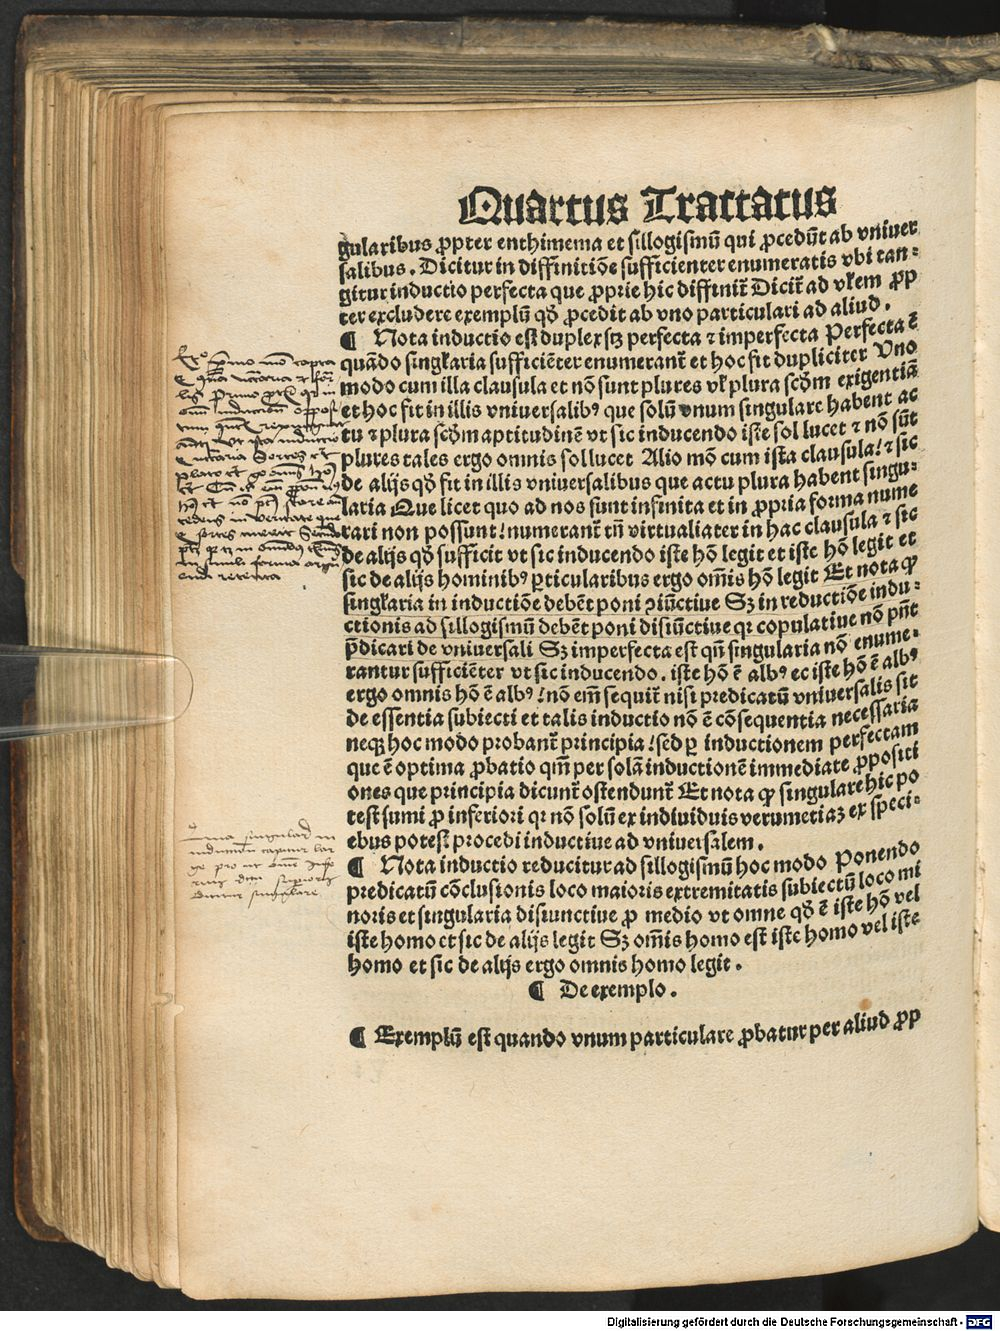 Quartus Tractatus
gularibus ꝓpter enthimema et sillogismū qui ꝓcedūt ab vniuer
salibus. Dicitur in diffinitiōe sufficienter enumeratis vbi tan-
gitur inductio perfecta que ꝓprie hic diffinit᷑ Dicit᷑ ad vl̄em ꝓp
ter excludere exemplū qd̄ ꝓcedit ab vno particulari ad aliud.
¶ Nota inductio est duplex sꝫ perfecta ⁊ imperfecta Perfecta ē
quādo singl̄aria sufficiēter enumerant᷑ et hoc fit dupliciter Uno
modo cum illa clausula et nō sunt plures vl̄ plura scd̄m exigentiā
et hoc fit in illis vniuersalibꝰ que solū vnum singulare habent ac
tu ⁊ plura scd̄m aptitudinē vt sic inducendo iste sol lucet ⁊ nō sūt
plures tales ergo omnis sol lucet Alio mō cum ista clausula! ⁊ sic
de alijs qd̄ fit in illis vniuersalibus que actu plura habent singu-
laria Que licet quo ad nos sunt infinita et in ꝓpria forma nume
rari non possunt! numerant᷑ tn̄ virtualiter in hac clausula ⁊ sic
de alijs qd̄ sufficit vt sic inducendo iste hō legit et iste hō legit et
sic de alijs hominibꝰ ꝑticularibus ergo om̄is hō legit Et nota ꝙ
singl̄aria in inductiōe debēt poni ↄiūctiue Sꝫ in reductiōe indu-
ctionis ad sillogismū debēt poni disiūctiue qꝛ copulatiue nō pn̄t
p̄dicari de vniuersali Sꝫ imperfecta est qn̄ singularia nō enume-
rantur sufficiēter vt sic inducendo. iste hō ē albꝰ ec iste hō ē albꝰ
ergo omnis hō ē albꝰ! nō em̄ sequit᷑ nisi predicatū vniuersalis sit
de essentia subiecti et talis inductio nō ē cōsequentia necessaria
neqꝫ hoc modo probant᷑ principia! sed ꝑ inductionem perfectam
que ē optima ꝓbatio qm̄ per solā inductionē immediate ꝓpositi
ones que principia dicunt᷑ ostendunt᷑ Et nota ꝙ singulare hic po
test sumi ꝓ inferiori qꝛ nō solū ex indiuiduis verumetiaꝫ ex speci-
ebus potest procedi inductiue ad vniuersalem.
¶ Nota inductio reducitur ad sillogismū hoc modo Ponendo
predicatū cōclusionis loco maioris extremitatis subiectū loco mi
noris et singularia disiunctiue ꝓ medio vt omne qd̄ ē iste hō vel
iste homo et sic de alijs legit Sꝫ om̄is homo est iste homo vel iste
homo et sic de alijs ergo omnis homo legit.
¶ De exemplo.
¶ Exemplū est quando vnum particulare ꝓbatur per aliud ꝓp
Digitalisierung gefördert durch die Deutsche Forschungsgemeinschaft - DFG